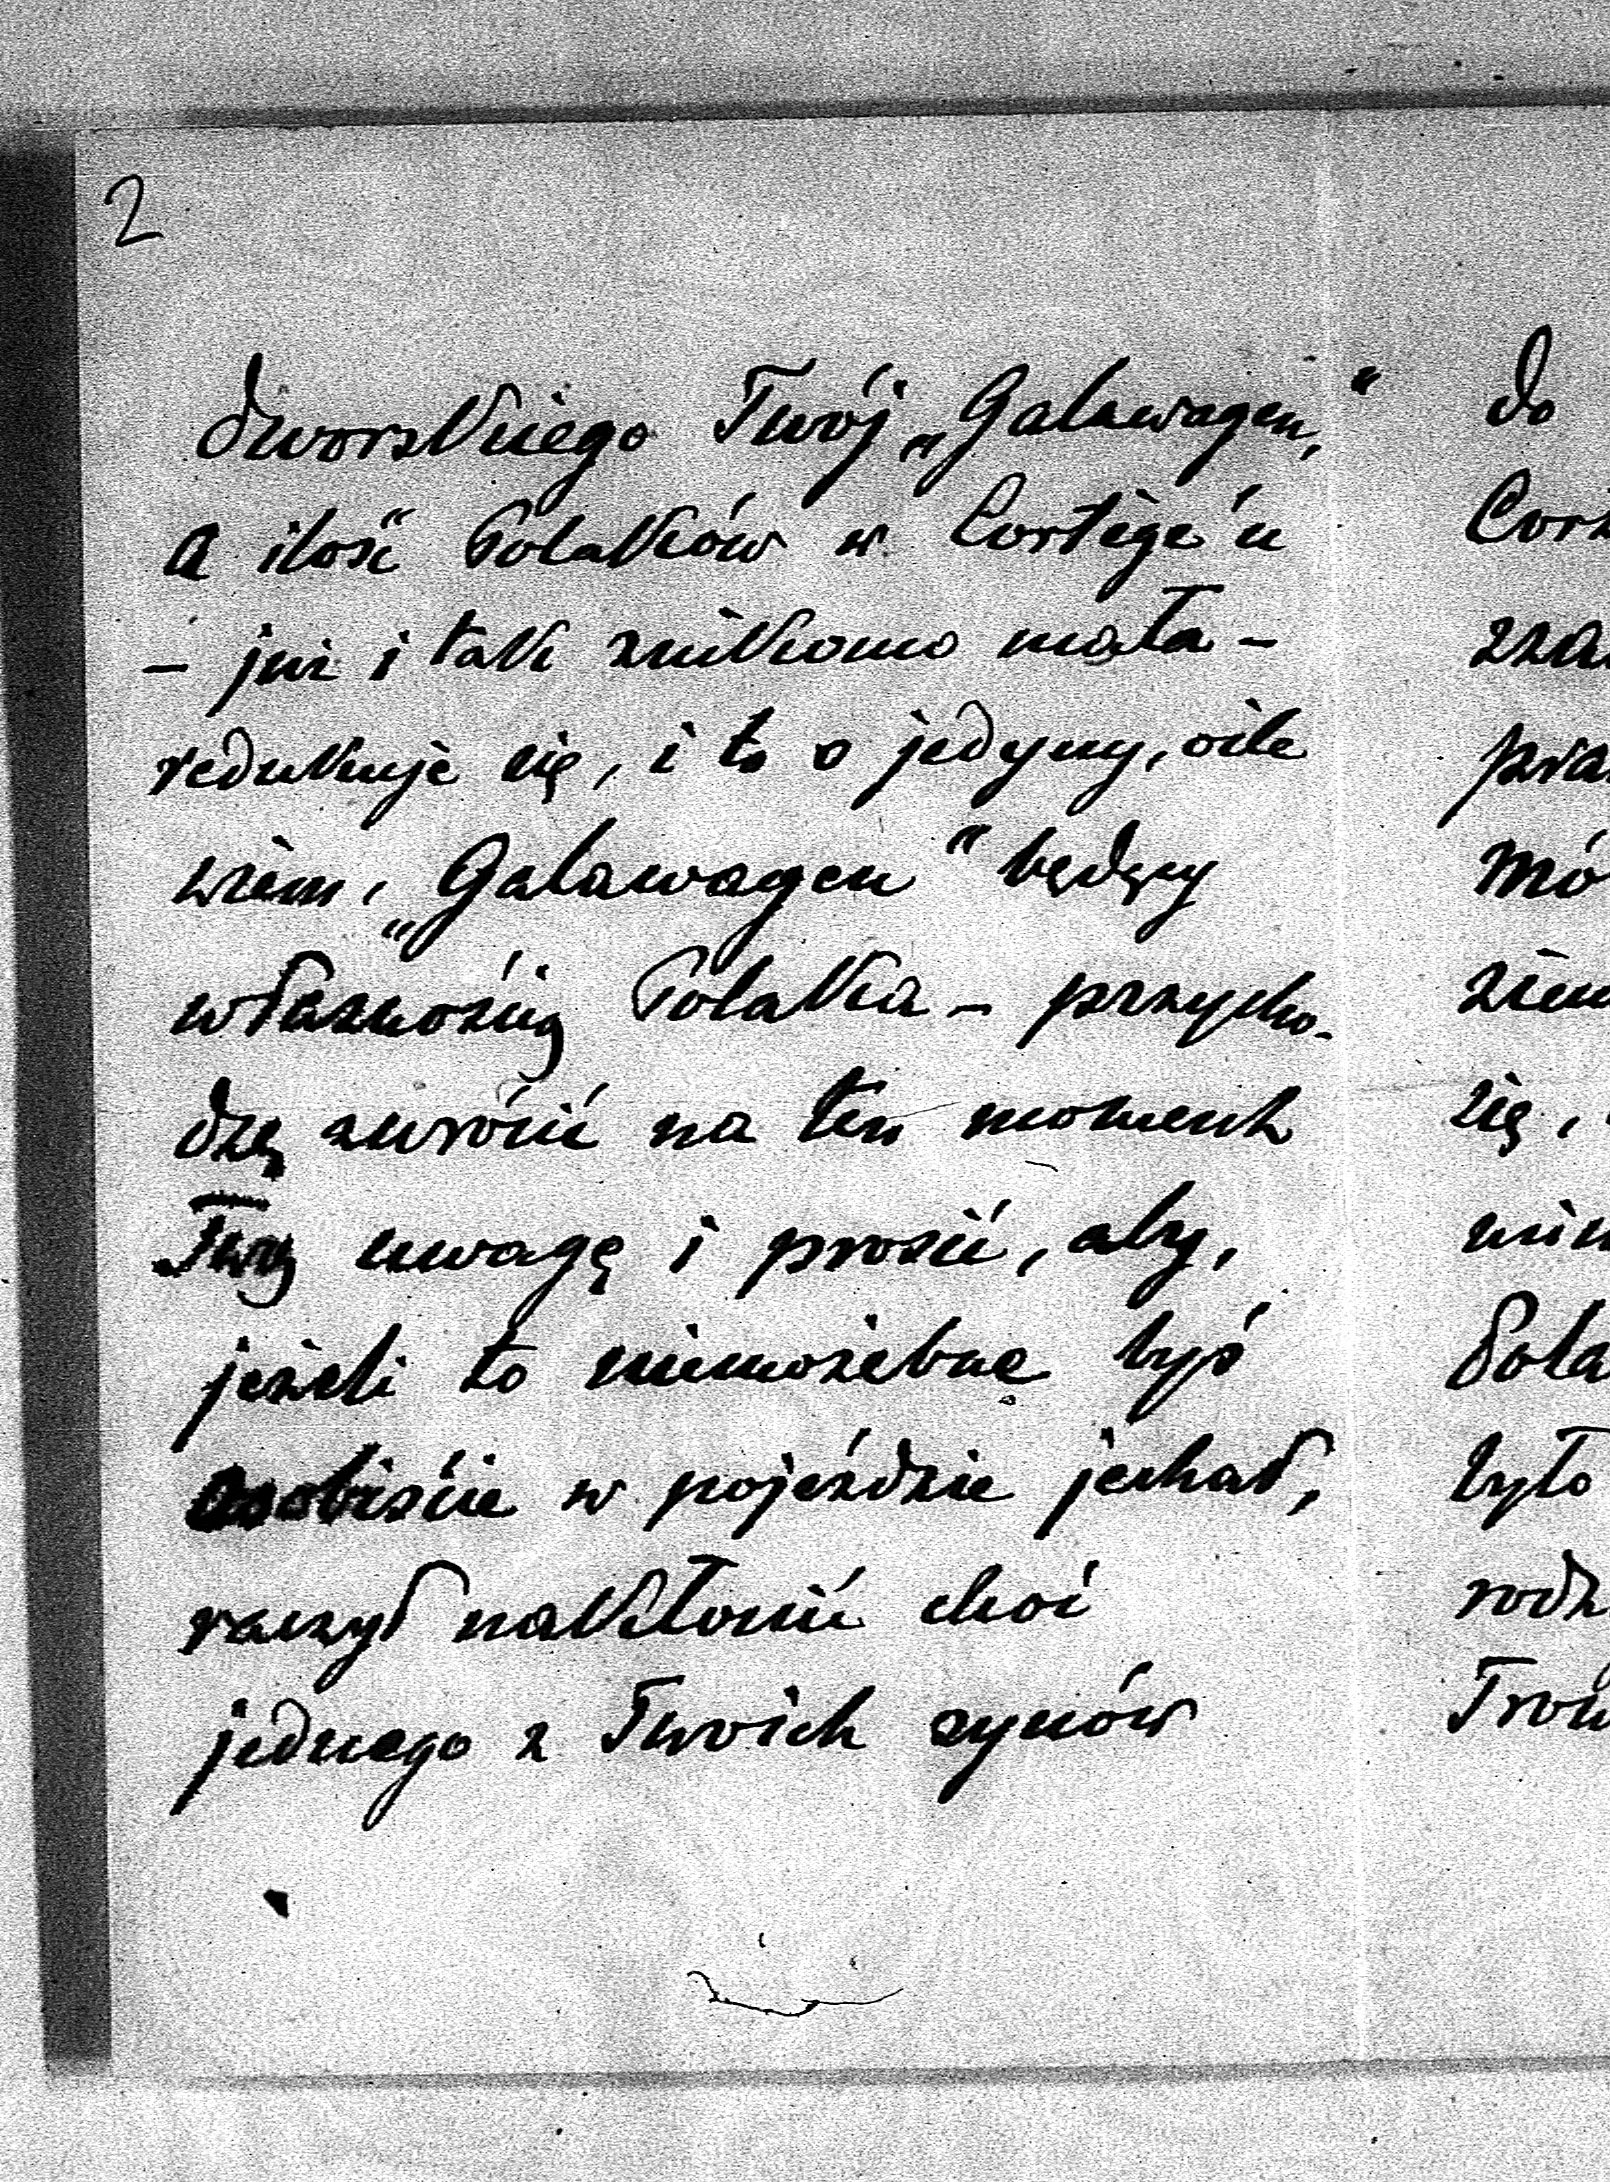 2
dworskiego Twój „Galawagen,“
a ilość Polaków w Cortège'u
– już i tak znikomo mała –
redukuje się, i to o jedyny, oile
wiem, „Galawagen“ będący
własnością Polaka – przycho-
dzę zwrócić na ten moment
Twą uwagę i prosić, aby,
jeżeli to niemożebne byś
osobiście w pojeździe jechał,
raczył nakłonić choć
jednego z Twoich synów
do
Cor
zza
pra
Mó
ziem
się,
min
Pola
było
rodz
Tron